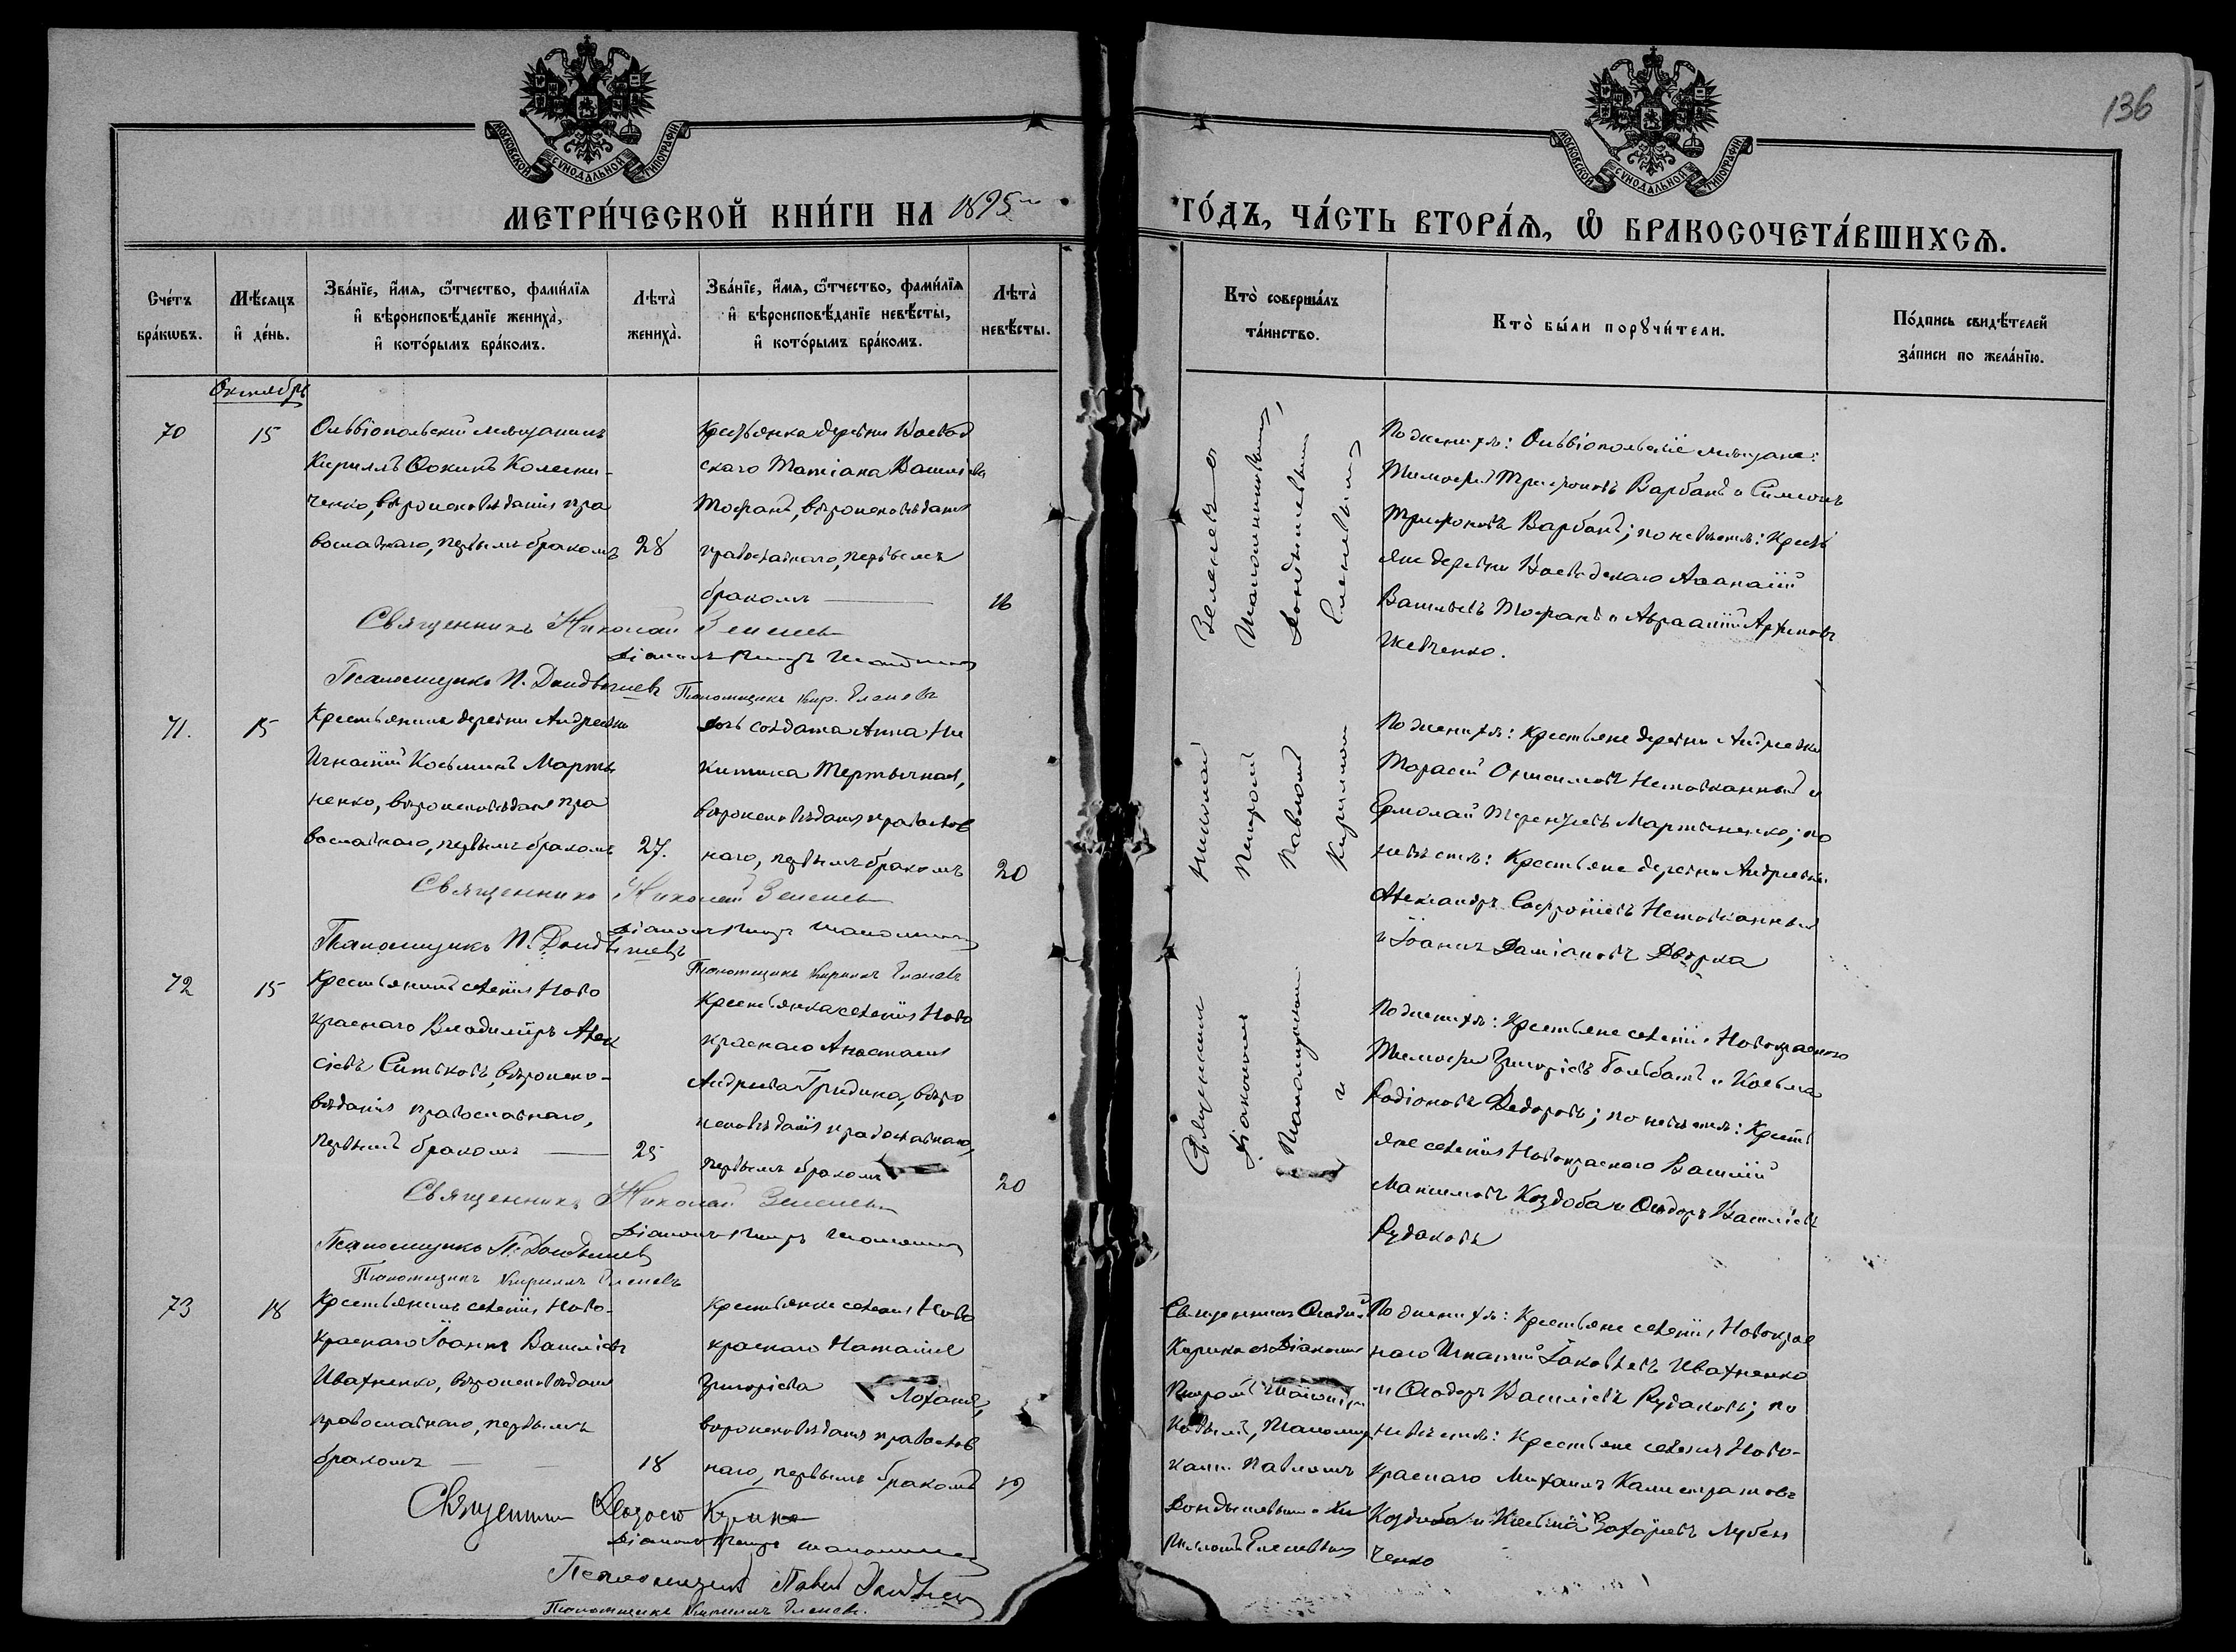 136
МОСКОВСКОЙ СѴНОДАЛЬНОЙ ТИПОГРАФІИ
МОСКОВСКОЙ СѴНОДАЛЬНОЙ ТИПОГРАФІИ
МЕТРИ́ЧЕСКОЙ КНИ́ГИ НА 1895
ГО́ДЪ, ЧА́СТЬ ВТОРА́Ѧ, Ѽ БРАКОСОЧЕТА́ВШИХСѦ.
Сче́тъ бра́кѡвъ.
Мѣ́сяцъ и҆ де́нь.
Зва́нїе, и҆́мѧ, ѻ҆́тчество, фами́лїѧ
и҆ вѣроисповѣ́данїе жениха̀,
и҆ кото́рымъ бра́комъ.
Лѣта̀ жениха̀.
Зва́нїе, и҆́мѧ, ѻ҆́тчество, фами́лїѧ
и҆ вѣроисповѣ́данїе невѣ́сты,
и҆ кото́рымъ бра́комъ.
Лѣта̀ невѣ́сты.
Кто̀ соверша́лъ та́инство.
Кто̀ бы́ли порꙋчи́тели.
По́дпись свидѣ́телей за́писи по жела́нїю.
Октябрь
70
15
Ольвіопольскій мѣщанинъ
Кириллъ Ѳокинъ Колесни-
ченко, вѣроисповѣданія пра
вославнаго, первымъ бракомъ
28
Крестьянка деревни Воевод
скаго Татіана Васильева
Тофанъ, вѣроисповѣданія
православнаго, первымъ
бракомъ
16
По женихѣ: Ольвіопольскіе мѣщане:
Тимофей Трифоновъ Варбанъ и Симеонъ
Трифоновъ Варбанъ; по невѣстѣ: Кресть
яне деревни Воеводскаго Аѳанасій
Васильевъ Тофанъ и Авраамій Архиповъ
Шевченко.
Священникъ Николай Зеленев
Псаломщикъ П. Дондышевъ
Псаломщикъ Кир. Еленевъ
71.
15
Крестьянинъ деревни Андреевки
Игнатій Косьминъ Марты
ненко, вѣроисповѣданія пра
вославнаго, первымъ бракомъ
27.
дочь солдата Анна Ни
китина Тертычная,
вѣроисповѣданія православ
наго, первымъ бракомъ
20
По женихѣ: Крестьяне деревни Андреевки
Тарасій Онисимовъ Нетовканный и
Ермолай Терентіевъ Мартыненко; по
невѣстѣ: Крестьяне деревни Андреевки
Александръ Софроніевъ Нетовканный
и Іоаннъ Даміановъ Дворка
Священникъ Николай Зеленев
Псаломщикъ П. Дондышевъ
Псаломщикъ Кириллъ Еленевъ
72
15
Крестьянинъ селенія Ново
краснаго Владиміръ Алек
сіевъ Ситьковъ, вѣроиспо-
вѣданія православнаго,
первымъ бракомъ
25
Крестьянка селенія Ново
краснаго Анастасія
Андреева Гридина, вѣро
исповѣданія православнаго,
первымъ бракомъ
20
Священникомъ Николай Зеленевъ
Діакономъ Петромъ
Псаломщиками Павломъ Дондышевымъ
и Кирилломъ Еленевымъ
По женихѣ: Крестьяне селенія Новокраснаго
Тимофей Григоріевъ Гольбатъ и Косьма
Родіоновъ Ѳедоровъ; по невѣстѣ: Кресть
яне селенія Новокраснаго Василій
Максимовъ Коздоба и Ѳеодоръ Василіевъ
Рудаковъ
Священникъ Николай Зеленев
Псаломщикъ П. Дондышевъ
Псаломщикъ Кириллъ Еленевъ
73
18
Крестьянинъ селенія Ново-
краснаго Іоаннъ Василіевъ
Ивахненко, вѣроисповѣданія
православнаго, первымъ
бракомъ
18
Крестьянка селенія Ново
краснаго Наталія
Григоріева Лоханя,
вѣроисповѣданія православ
наго, первымъ бракомъ
19
Священникъ Ѳеодосій
Курика съ Діакономъ
Петромъ
Псаломщи
ками Павломъ
Дондышевымъ и Ки
рилломъ Еленевымъ
По женихѣ: Крестьяне селенія Новокрас
наго Игнатій Іаковлевъ Ивахненко
и Ѳеодоръ Василіевъ Рудаковъ; по
невѣстѣ: Крестьяне селенія Ново-
краснаго Михаилъ Калистратовъ
Коздоба и Косьма Захаріевъ Лубен
ченко
Священникъ Ѳеодосій Курика
Псаломщикъ Павелъ Дондышевъ
Псаломщикъ Кириллъ Еленевъ.